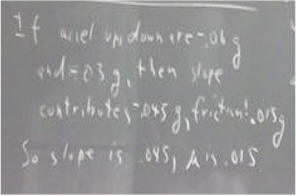 If accel up, down are -.06 g
and -.03 g, then slope
contributes -.045 g, friction .015g
So slope is .045, μ is .015